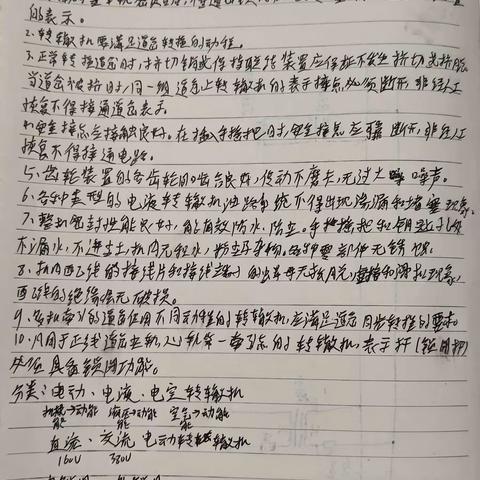 的表示。
2. 转辙机要满足道岔转换的动程。
3. 正常转换道岔时,挤切销或保持联结装置应保证不发生挤切或挤脱
当道岔被挤时,同一组道岔上转辙机的表示接点必须断开,非经人工
恢复不得接通道岔表示。
4. 安全接点应接触良好。在插入手摇把时,安全接点应断开,非经人工
恢复不得接通电路。
5、齿轮装置的各齿轮间啮合良好,传动不磨卡,无过大噪声。
6. 各种类型的电液转辙机油路系统不得出现渗漏和堵塞现象。
7、整机密封性能良好,能有效防水、防尘。手摇把孔和钥匙孔
不漏水,不进尘土,机内无积水,粉尘及杂物。各种零部件无锈蚀。
8、机内配线的接线片和接线端子的螺母无松脱,虚接和滑扣现象,
配线的绝缘层无破损。
9、多机牵引的道岔使用不同动程的转辙机,应满足道岔同步转换的要求
10、凡用于正线道岔尖轨,心轨第一牵引点的转辙机,表示杆(锁闭杆)
必须具备锁闭功能。
分类:电动、电液、电空转辙机
机械→动能 液压→动能 空气→动能
能 能 能
直流、交流 电动转辙机
160V 380V